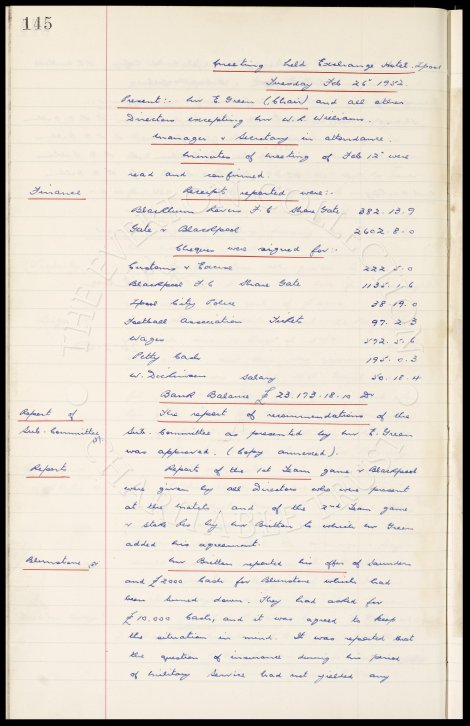 145
Meeting held Exchange Hotel. Lpool
Tuesday Feb 26th 1952.
Present:- Mr E. Green (Chair) and all other
Directors excepting Mr W. R. Williams.
Manager & Secretary in attendance.
Minutes of meeting of Feb 12th were
read and confirmed.
Finance
Receipts reported were:-
Blackburn Rovers F.C Share Gate 382. 13. 9
Gate v Blackpool 2602. 8. 0
Cheques were signed for:-
Customs & Excise 222. 5. 0
Blackpool F.C Share Gate 1135. 1. 6
Lpool City Police 38. 19. 0
Football Association Tickets 97. 2. 3
Wages 572. 5. 6
Petty Cash 195. 0. 3
W. Dickinson Salary 50. 18. 4
Bank Balance £ 23. 173. 18. 10 Dr
Report of
Sub. Committee
The report of recommendations of the
Sub. Committee as presented by Mr E. Green
was approved. (Copy annexed).
Reports
Report of the 1st Team game v Blackpool
were given by all Directors who were present
at the match and of the 2nd Team game
v Stoke Res by Mr Britton to which Mr Green
added his agreement.
Blunstone
Mr Britton reported his offer of Saunders
and £2000 cash for Blunstone which had
been turned down. They had asked for
£10.000 cash, and it was agreed to keep
the situation in mind. It was reported that
the question of insurance during his period
of Military Service had not yielded any